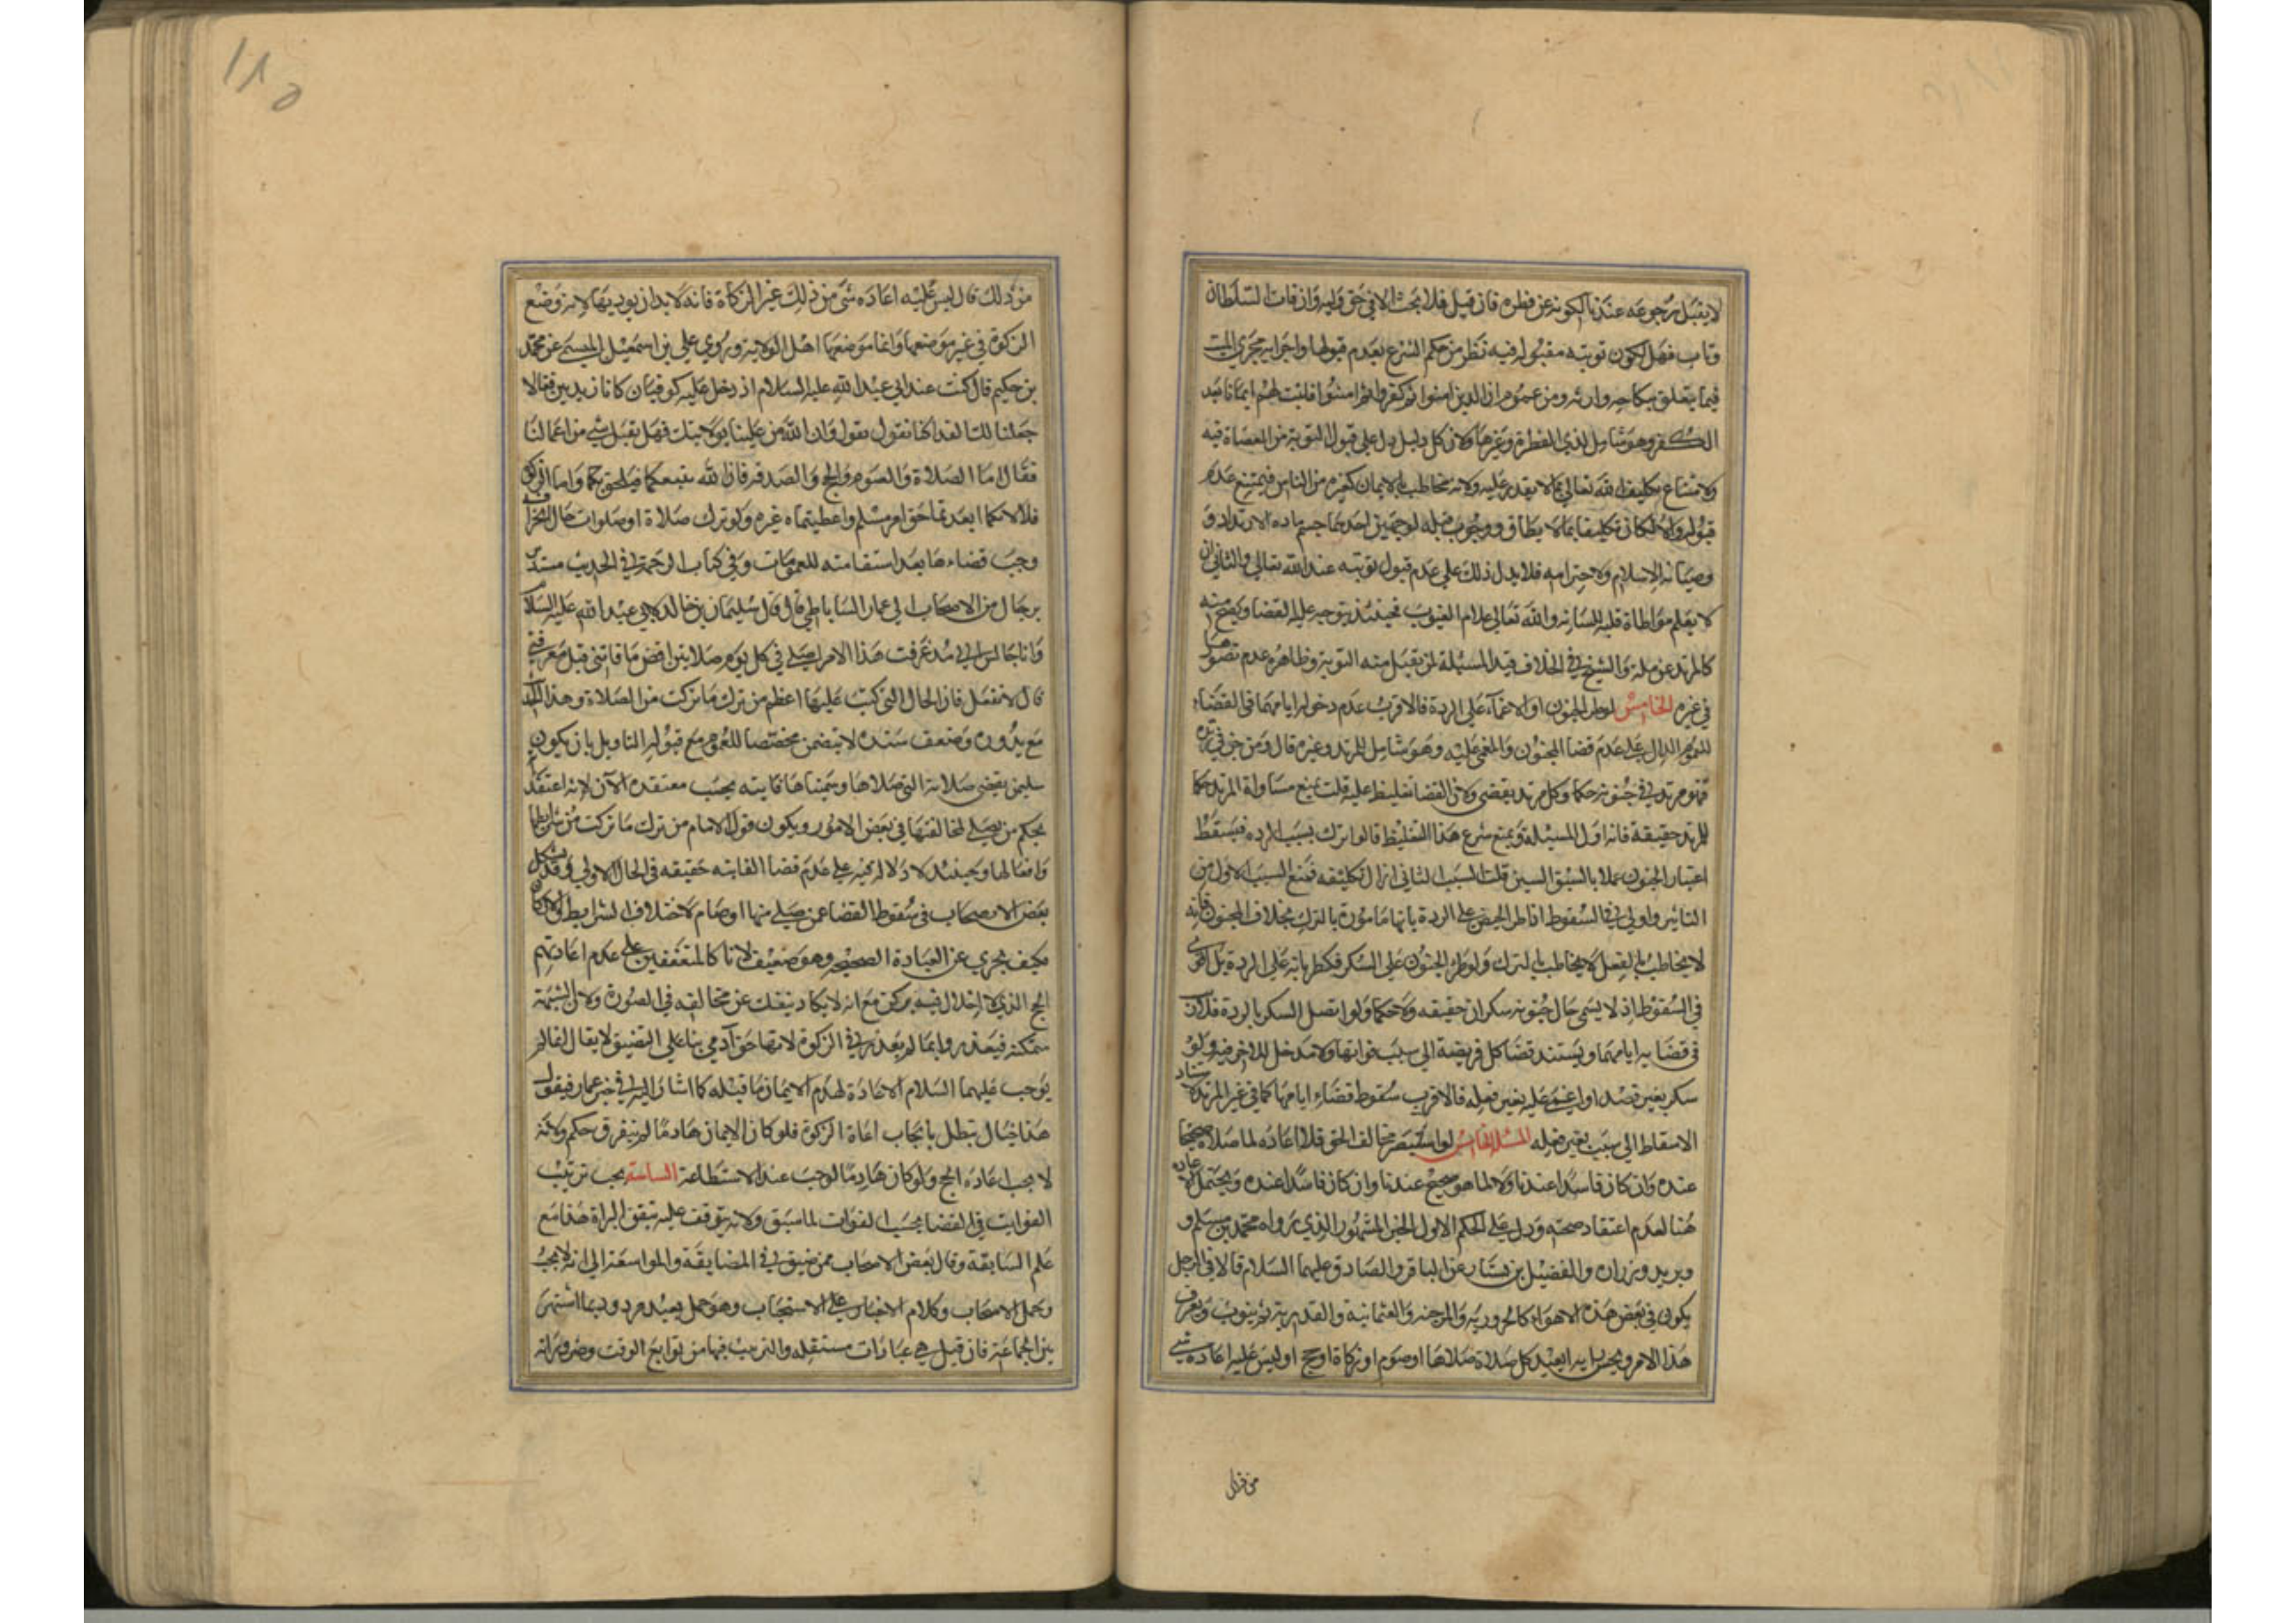 لا يقبل رجوعه عندنا لكونه عن فطره فان قيل فلا بحث الا في حق وليه وان فات السلطان
وتاب فهل تكون توبته مقبولة فيه نظر من حكم الشرع بعدم قبولها واجرايه مجرى الميت
فيما يتعلق بنكاحه وارثه ومن عموم ان الذين امنوا ثم كفروا ثم امنوا فليثبت لهم ايمانا بعد
الكفر وهو شامل لذي الفطرة وغيرها ولان كل دليل دل على قبول التوبة من العصاة فيه
ولامتناع تكليف الله تعالى بما لا يقدر عليه ولانه مخاطب بالايمان كغيره من الناس فيمتنع عدم
قبوله والا لكان تكليفا بما لا يطاق ووجوب قتله لوجهين احدهما حسم ماده الارتداد و
وصيانة الاسلام ولاحترامه فلا يدل ذلك على عدم قبول توبته عند الله تعالى والثاني ان
لا يعلم مواطاة قلبه للسانه والله تعالى علام الغيوب فحينئذ يتوجه عليه القضا ويصح منه
كالمرتد عن ملة والشيخ في الخلاف قيد المسئلة لمن يقبل منه التوبة وظاهره عدم تصورها
في غيره الخامس لو طرا الجنون او الاغماء على الردة فالاقرب عدم دخول ايامهما في القضاء
للعموم الدال على عدم قضا المجنون والمغمى عليه وهو شامل للمرتد وغيره قال ومن جن في ردته
فهو مرتد في جنونه حكما وكل مرتد يقضي ولان القضا تغليظ عليه قلت نمنع مساواة المرتد حكما
للمرتد حقيقة فانه اول المسئلة ونمنع شرع هذا التغليظ قالوا ترك بسبب الرده فيسقط
اعتبار الجنون عملا بالسبق السببين قلت السبب الثاني ازال تكليفه فمنع السبب الاول من
التاثير واولى في السقوط اذا طرا الحيض على الردة لانها مامورة بالترك بخلاف المجنون فانه
لا يخاطب بالفعل لا يخاطب بالترك ولو طرا الجنون على السكر فكطريانه على الردة بل اقوى
في السقوط اذ لا يسمى حال جنونه سكران حقيقه ولا حكما ولو اتصل السكر بالردة فلا شك
في قضايه ايامهما ويستند قضا كل فريضة الى سبب فواتها ولا مدخل للاخر فيه ولو
سكر بغير قصد او اغمي عليه بغير فعله فالاقرب سقوط قضاء ايامهما كما في غير المرتد لاستناد
الاسقاط الى سبب بغير فعله المسئلة الخامس لو استبصر مخالف الحق فلا اعاده لما صلاه صحيحا
عنده وان كان فاسدا عندنا ولا لما هو صحيح عندنا وان كان فاسدا عنده ويحتمل الاعاده
هنا لعدم اعتقاد صحته ودل على الحكم الاول الخبر المشهور الذي رواه محمد بن مسلم و
وبريد وزراره والفضيل بن يسار عن الباقر والصادق عليهما السلام قالا في الرجل
يكون في بعض هذه الاهواء كالحرورية والمرجئه والعثمانية والقدرية ثم يتوب ويعرف
هذا الامر ويحسن رايه ايعيد كل صلاة صلاها او صوم او زكاة او حج او ليس عليه اعاده شي
من ذلك قال ليس عليه اعاده شي من ذلك غير الزكاة فانه لا بد ان يوديها لانه وضع
الزكوة في غير موضعها وانما موضعها اهل الولاية وروى علي بن اسمعيل الميثمي عن محمد
بن حكيم قال كنت عند ابي عبد الله عليه السلام اذ دخل عليه كوفيان كانا زيديين فقالا
جعلنا لك الفدا كنا نقول بقول وان الله من علينا بولايتك فهل يقبل شي من اعمالنا
فقال اما الصلاة والصوم والحج والصدقه فان الله يتبعكما فيلحق بكما واما الزكوة
فلا لانكما ابعدتما حق امرء مسلم واعطيتماه غيره ولو ترك صلاة او صلوات حال انحرافه
وجب قضاءها بعد استقامته للعمومات وفي كتاب الرحمة في الحديث مسندا
برجال من الاصحاب الى عمار الساباطي قال قال سليمان بن خالد لابي عبد الله عليه السلام
وانا جالس اني مذ عرفت هذا الامر اصلي في كل يوم صلاتين اقضي ما فاتني قبل معرفتي
قال لا تفعل فان الحال التي كنت عليها اعظم من ترك ما تركت من الصلاة وهذا الحديث
مع ندوره وضعف سنده لا ينهض مخصصا للعموم مع قبوله التاويل بان يكون
سليمن يقضي صلاته التي صلاها وسميناها فايته بحسب معتقده الآن لانه اعتقد
بحكم من يصلي لمخالفتها في بعض الامور ويكون قول الامام من ترك ما تركت من شرايطها
وافعالها وحينئذ لا دلالة فيه على عدم قضا الفايته حقيقه في الحال الاولى وقد يشكل
بعض الاصحاب في سقوط القضا عمن صلى منها او صام لاختلاف الشرايط والاركان
فكيف يجزي عن العبادة الصحيحه وهو ضعيف لانا كالمتفقين على عدم اعادتهم
الحج الذي لا اخلال فيه بركن مع انه لا يكاد ينفك عن مخالفه في الصورة ولان الشبهة
متمكنه فيعذر وانما لم يعذر في الزكوة لانها حق آدمي بناء على التضييق لا يقال لعله لم
يوجب عليهما السلام الاعادة لهدم الايمان ما قبله كما اشار اليه في خبر عمار فيقول
هذا خيال يبطل بايجاب اعادة الزكوة فلو كان الايمان هادما لم يفرق حكم ولانه
لا يجب اعادة الحج ولو كان هادما لوجب عند الاستطاعة السادسة يجب ترتيب
الفوايت في القضا بحسب الفوات لما سبق ولانه يتوقف عليه تيقن البراة هذا مع
علم السابقة وقال بعض الاصحاب ممن صنف في المضايقة والمواسعة الى انه لا يجب
وحمل الاصحاب وكلام الاخبار على الاستحباب وهو حمل بعيد مردود بما اشتهر
بين الجماعة فان قيل هي عبادات مستقله والترتيب فيها من توابع الوقت وضروراته